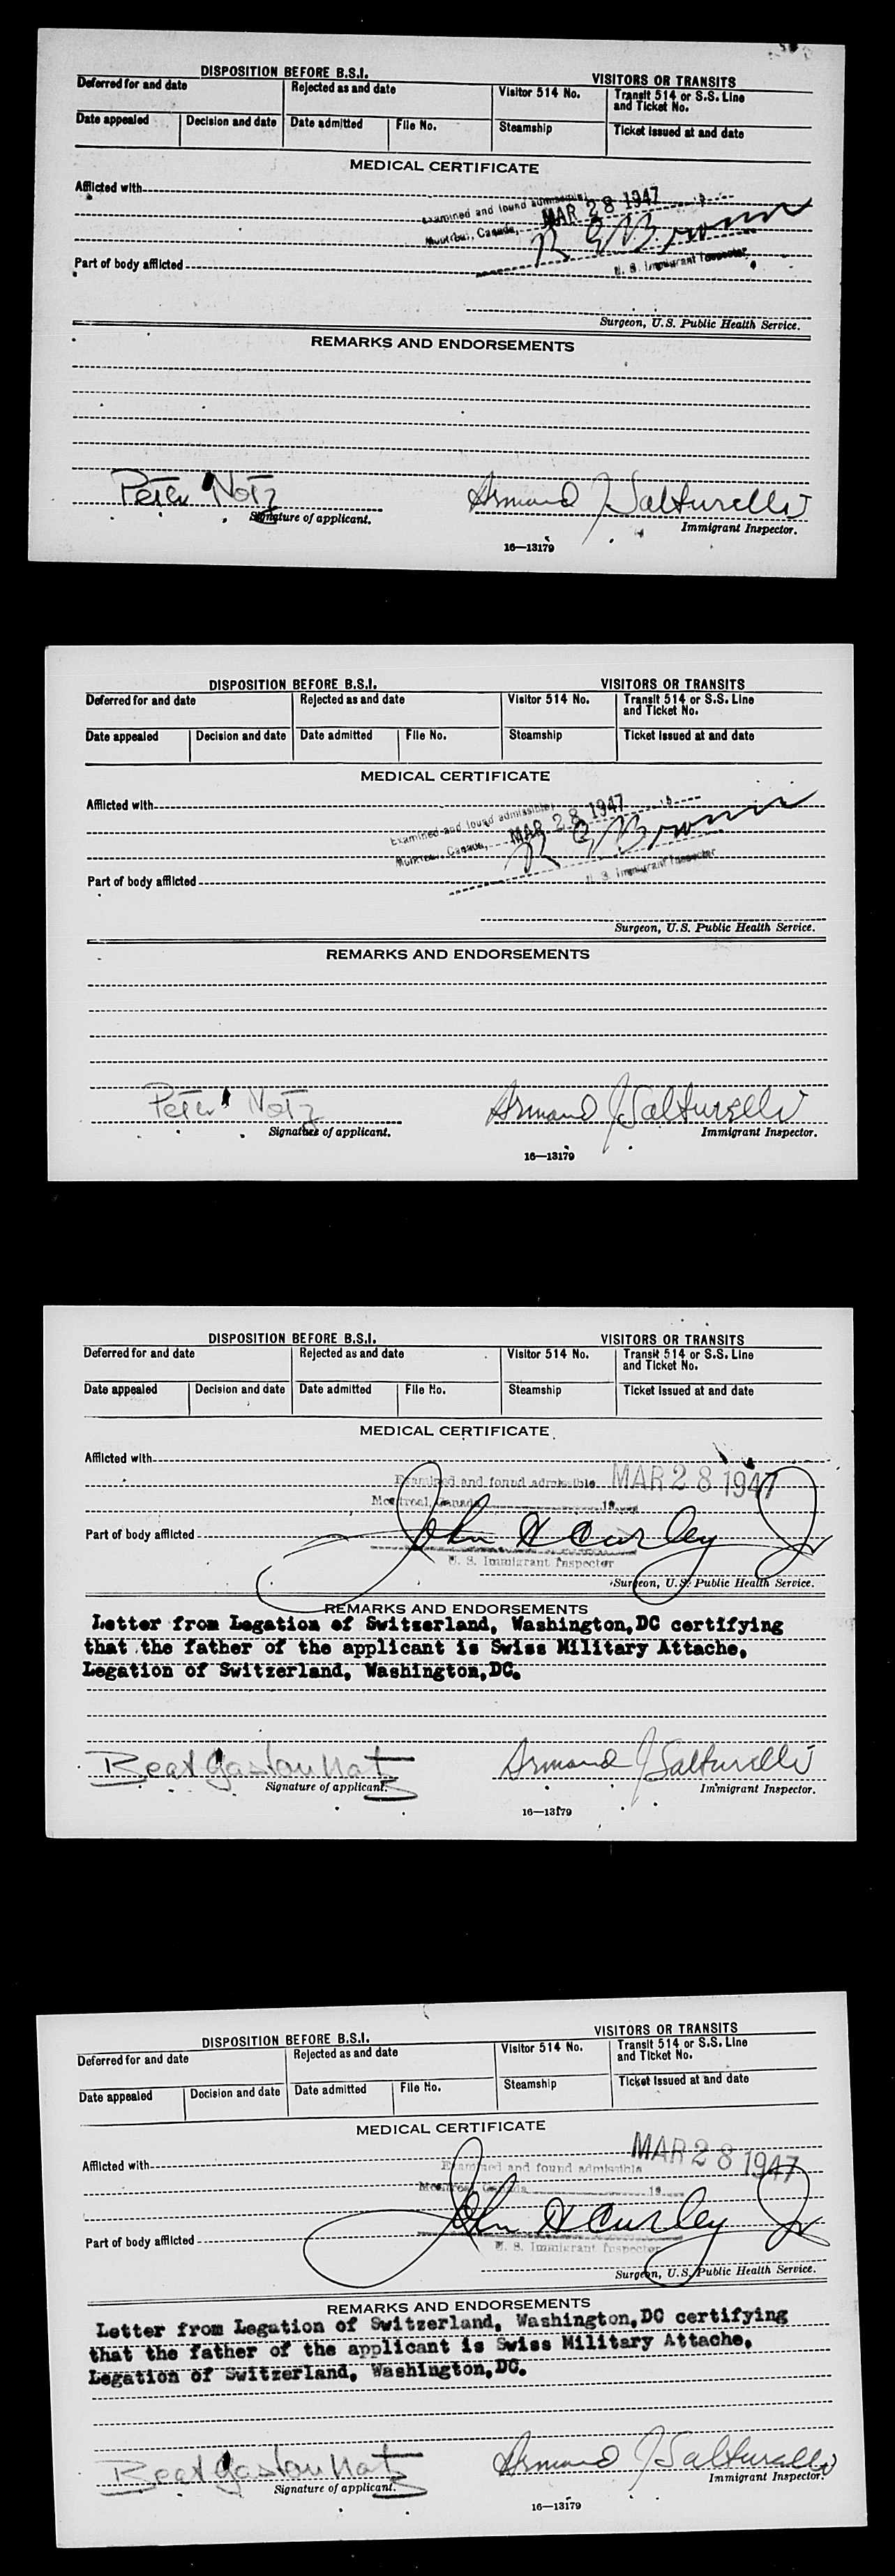 DISPOSITION BEFORE B.S.I. VISITORS OR TRANSITS
Deferred for and date Rejected as and date Visitor 514 No. Transit 514 or S.S. Line and Ticket No.
Date appealed Decision and date Date admitted File No. Steamship Ticket issued at and date
MEDICAL CERTIFICATE
Afflicted with
Examined and found admissible
MAR 28 1947
Montreal, Canada,
R G Brown
U. S. Immigrant Inspector
Part of body afflicted
Surgeon, U.S. Public Health Service.
REMARKS AND ENDORSEMENTS
Peter Notz Armand J. Salturelli
Signature of applicant. Immigrant Inspector.
16—13179
DISPOSITION BEFORE B.S.I. VISITORS OR TRANSITS
Deferred for and date Rejected as and date Visitor 514 No. Transit 514 or S.S. Line and Ticket No.
Date appealed Decision and date Date admitted File No. Steamship Ticket issued at and date
MEDICAL CERTIFICATE
Afflicted with
Examined and found admissible
MAR 28 1947
Montreal, Canada,
R G Brown
U. S. Immigrant Inspector
Part of body afflicted
Surgeon, U.S. Public Health Service.
REMARKS AND ENDORSEMENTS
Peter Notz Armand J. Salturelli
Signature of applicant. Immigrant Inspector.
16—13179
DISPOSITION BEFORE B.S.I. VISITORS OR TRANSITS
Deferred for and date Rejected as and date Visitor 514 No. Transit 514 or S.S. Line and Ticket No.
Date appealed Decision and date Date admitted File No. Steamship Ticket issued at and date
MEDICAL CERTIFICATE
Afflicted with
Examined and fonud admissible MAR 28 1947
Montreal, Canada 19
Part of body afflicted John H Curley Jr
U. S. Immigrant Inspector
Surgeon, U.S. Public Health Service.
REMARKS AND ENDORSEMENTS
Letter from Legation of Switzerland, Washington,DC certifying
that the father of the applicant is Swiss Military Attache,
Legation of Switzerland, Washington,DC.
Beat Gaston Notz Armand J. Salturelli
Signature of applicant. Immigrant Inspector.
16—13179
DISPOSITION BEFORE B.S.I. VISITORS OR TRANSITS
Deferred for and date Rejected as and date Visitor 514 No. Transit 514 or S.S. Line and Ticket No.
Date appealed Decision and date Date admitted File No. Steamship Ticket issued at and date
MEDICAL CERTIFICATE
Afflicted with
MAR 28 1947
Examined and found admissible
Montreal, Canada 19
Part of body afflicted John H Curley Jr
U. S. Immigrant Inspector
Surgeon, U.S. Public Health Service.
REMARKS AND ENDORSEMENTS
Letter from Legation of Switzerland, Washington,DC certifying
that the father of the applicant is Swiss Military Attache,
Legation of Switzerland, Washington,DC.
Beat Gaston Notz Armand J. Salturelli
Signature of applicant. Immigrant Inspector.
16—13179